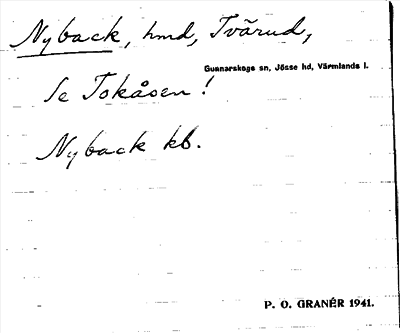 Nyback, hmd, Tvärud,
Gunnarskogs sn, Jösse hd, Värmlands l.
Se Tokåsen!
Nyback kb.
P. O. GRANÉR 1941.